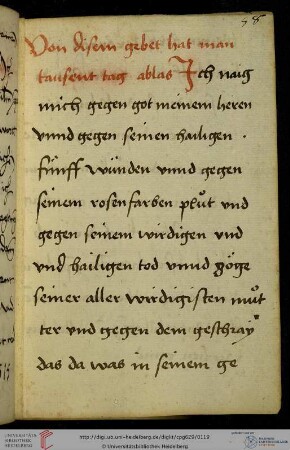 58
Von disem gebet hat man
tausent tag ablas Ich naig
mich gegen got meinem heren
vnnd gegen seinen hailigen ·
fünff wunden vnnd gegen
seinem rosenfarben plůt vnd
gegen seinem wirdigen vnd
vnd hailigen tod vnnd
seiner aller wirdigisten můt
ter vnd gegen dem geschray
das da was in seinem ge
http://digi.ub.uni-heidelberg.de/diglit/cpg629/0119
© Universitätsbibliothek Heidelberg